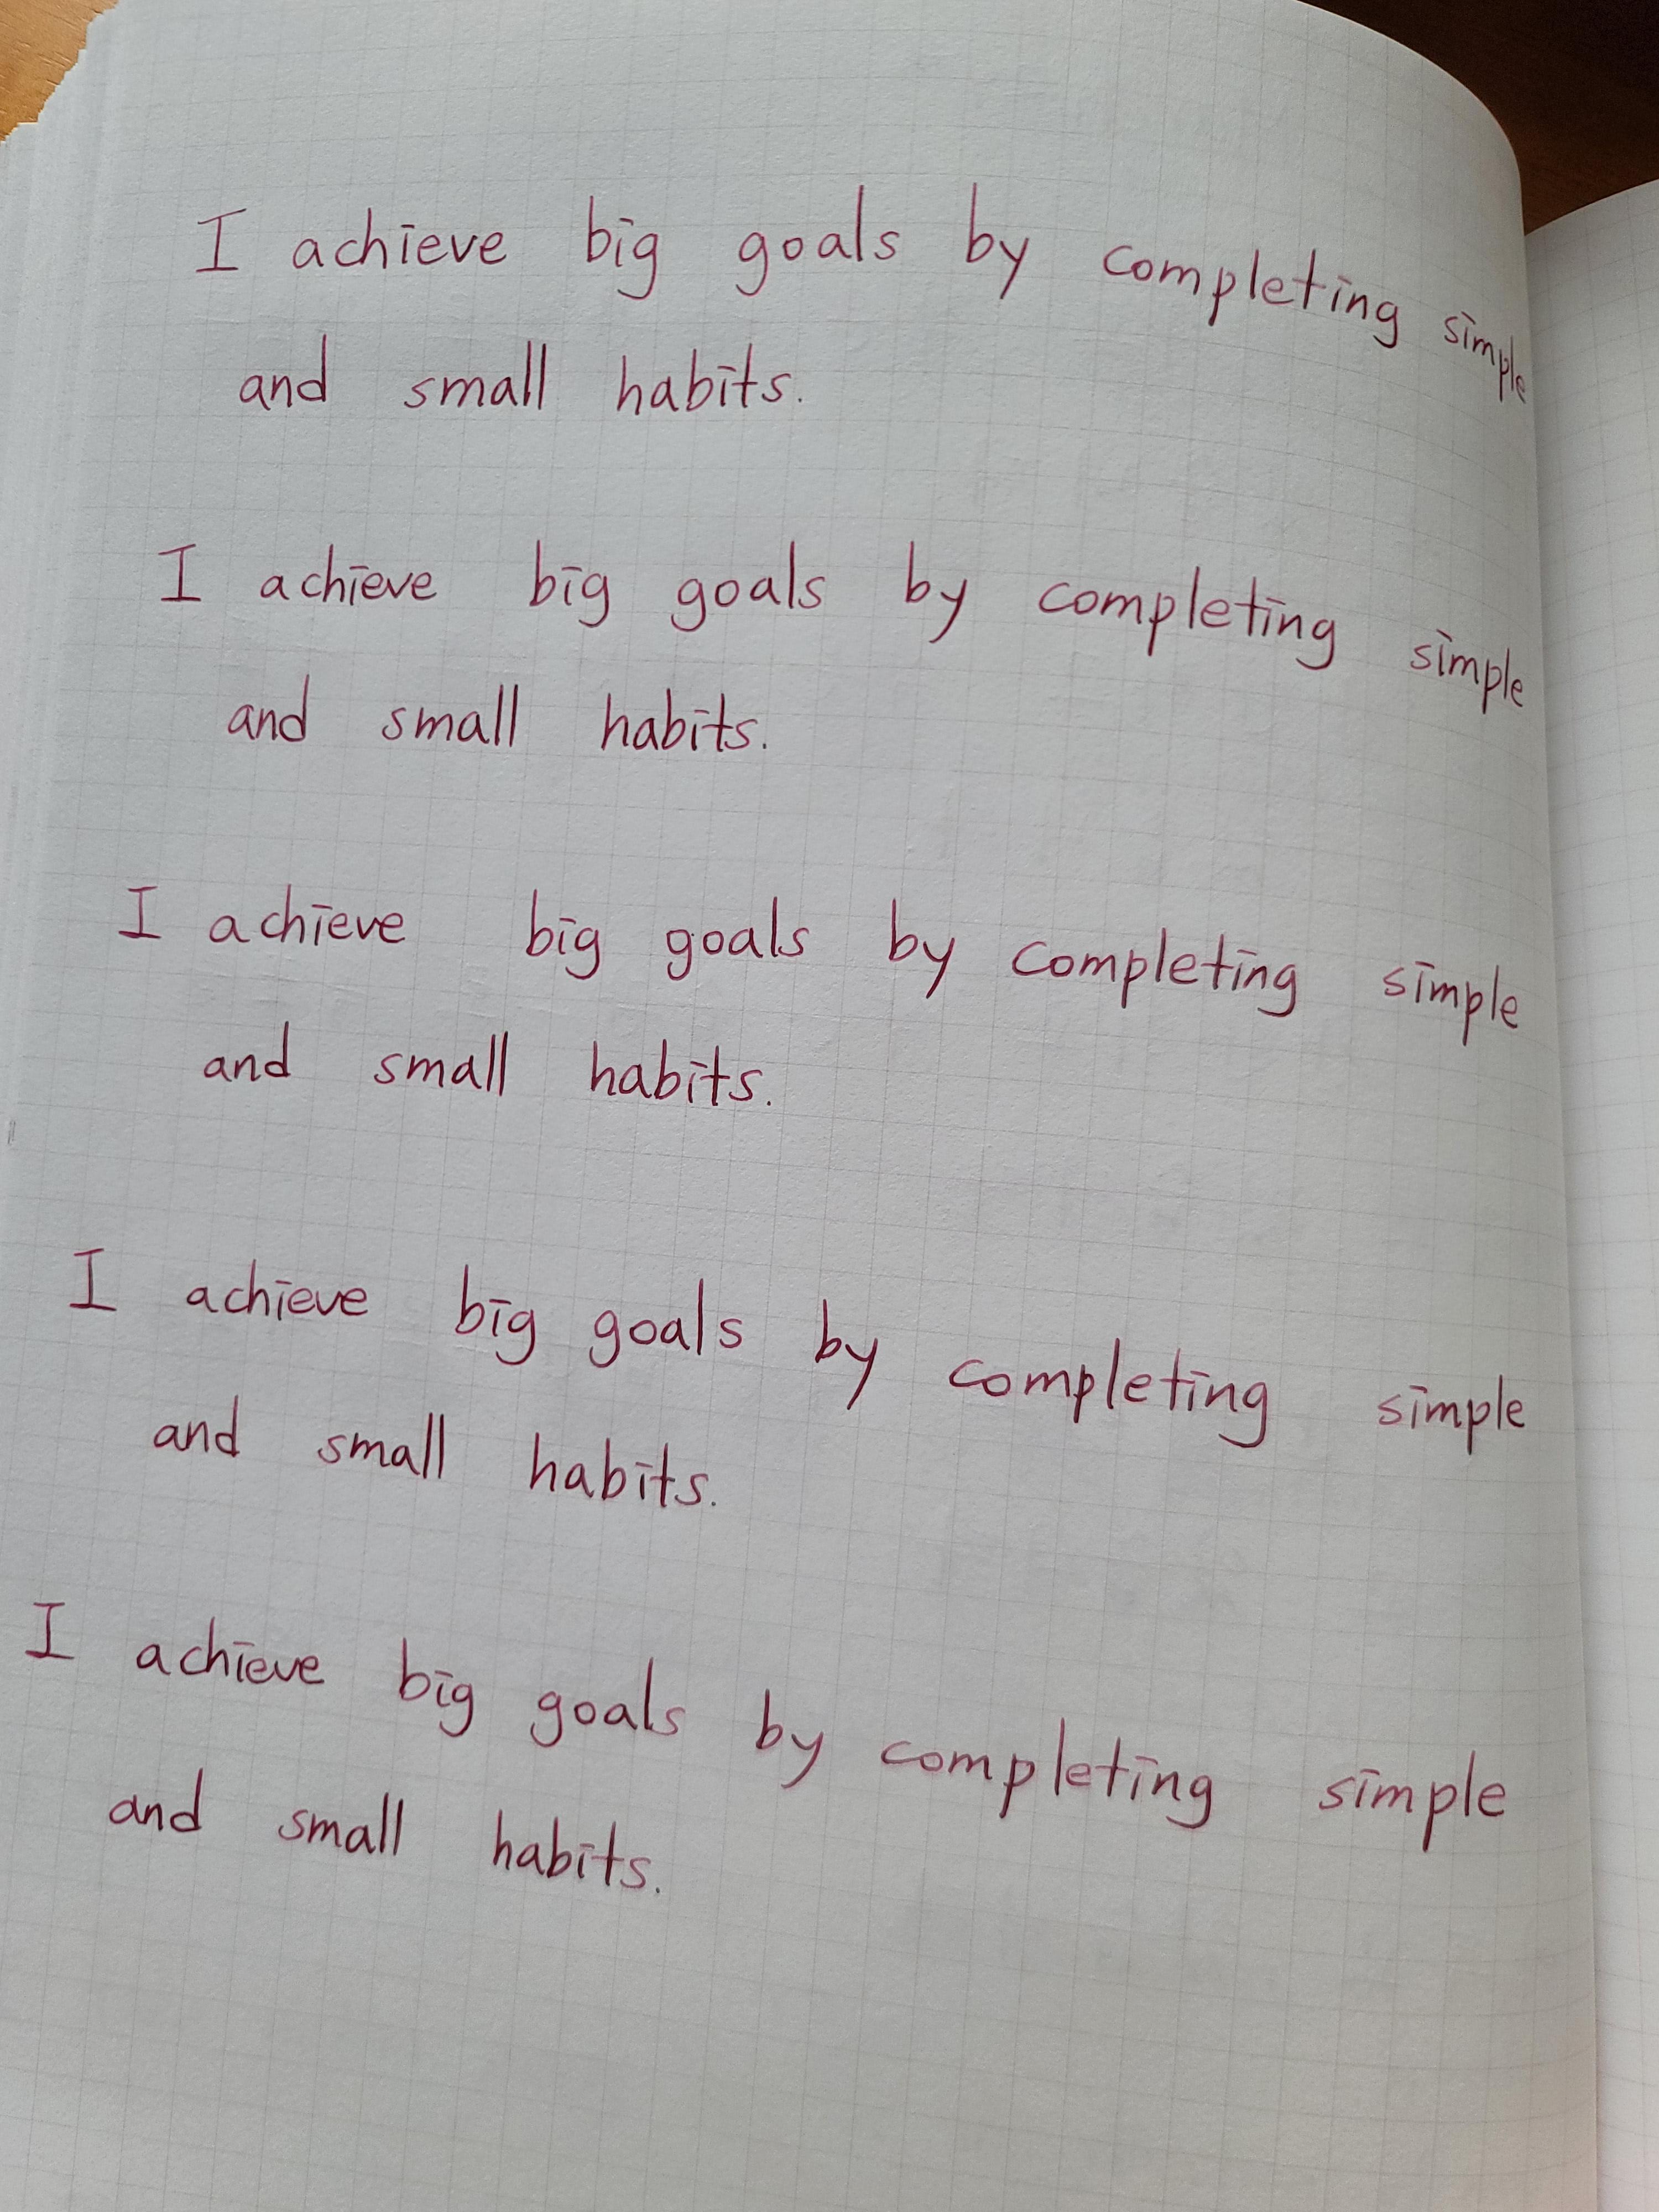 I achieve big goals by completing simple
and small habits.
I achieve big goals by completing simple
and small habits.
I achieve big goals by completing simple
and small habits.
I achieve big goals by completing simple
and small habits.
I achieve big goals by completing simple
and small habits.